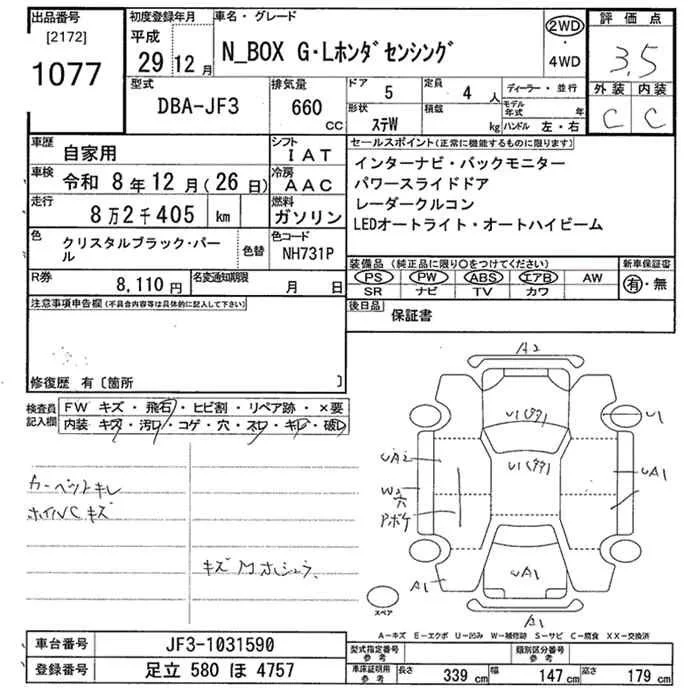 出品番号
[2172]
1077
初度登録年月
平成
29 12 月
車名・グレード
N_BOX G・Lホンダセンシング
2WD
・
4WD
評価点
3.5
外装 内装
C C
型式
DBA-JF3
排気量
660
CC
ドア
5
定員
4 人
形状
ステW
積載
kg
ディーラー・並行
モデル年式 年
ハンドル 左・右
車歴
自家用
シフト
IAT
車検
令和 8年 12月(26日)
冷房
AAC
走行
8万2千405 km
燃料
ガソリン
色
クリスタルブラック・パール
色替
色コード
NH731P
R券
8,110 円
名変通知期限
月 日
セールスポイント(正常に機能するものに限ります)
インターナビ・バックモニター
パワースライドドア
レーダークルコン
LEDオートライト・オートハイビーム
装備品(純正品に限り○をつけてください)
PS PW ABS エアB AW
SR ナビ TV カワ
新車保証書
有・無
後日品
保証書
注意事項申告欄(不具合内容等は具体的に記入して下さい)
修復歴 有〔箇所 〕
検査員記入欄
FW キズ・飛石・ヒビ割・リペア跡・×要
内装 キズ・汚レ・コゲ・穴・スレ・キレ・破レ
カーペットキレ
ホイルCキズ
A2
U1(99)
U1(99)
U1
UA2
UA1
W2
アボケ
UA1
A1
A1
スペア
A-キズ E-エクボ U-凹み W-補修跡 S-サビ C-腐食 XX-交換済
車台番号
JF3-1031590
登録番号
足立 580 ほ 4757
型式指定番号
参考
類別区分番号
参考
車庫証明用
参考
長さ 339 cm 幅 147 cm 高さ 179 cm